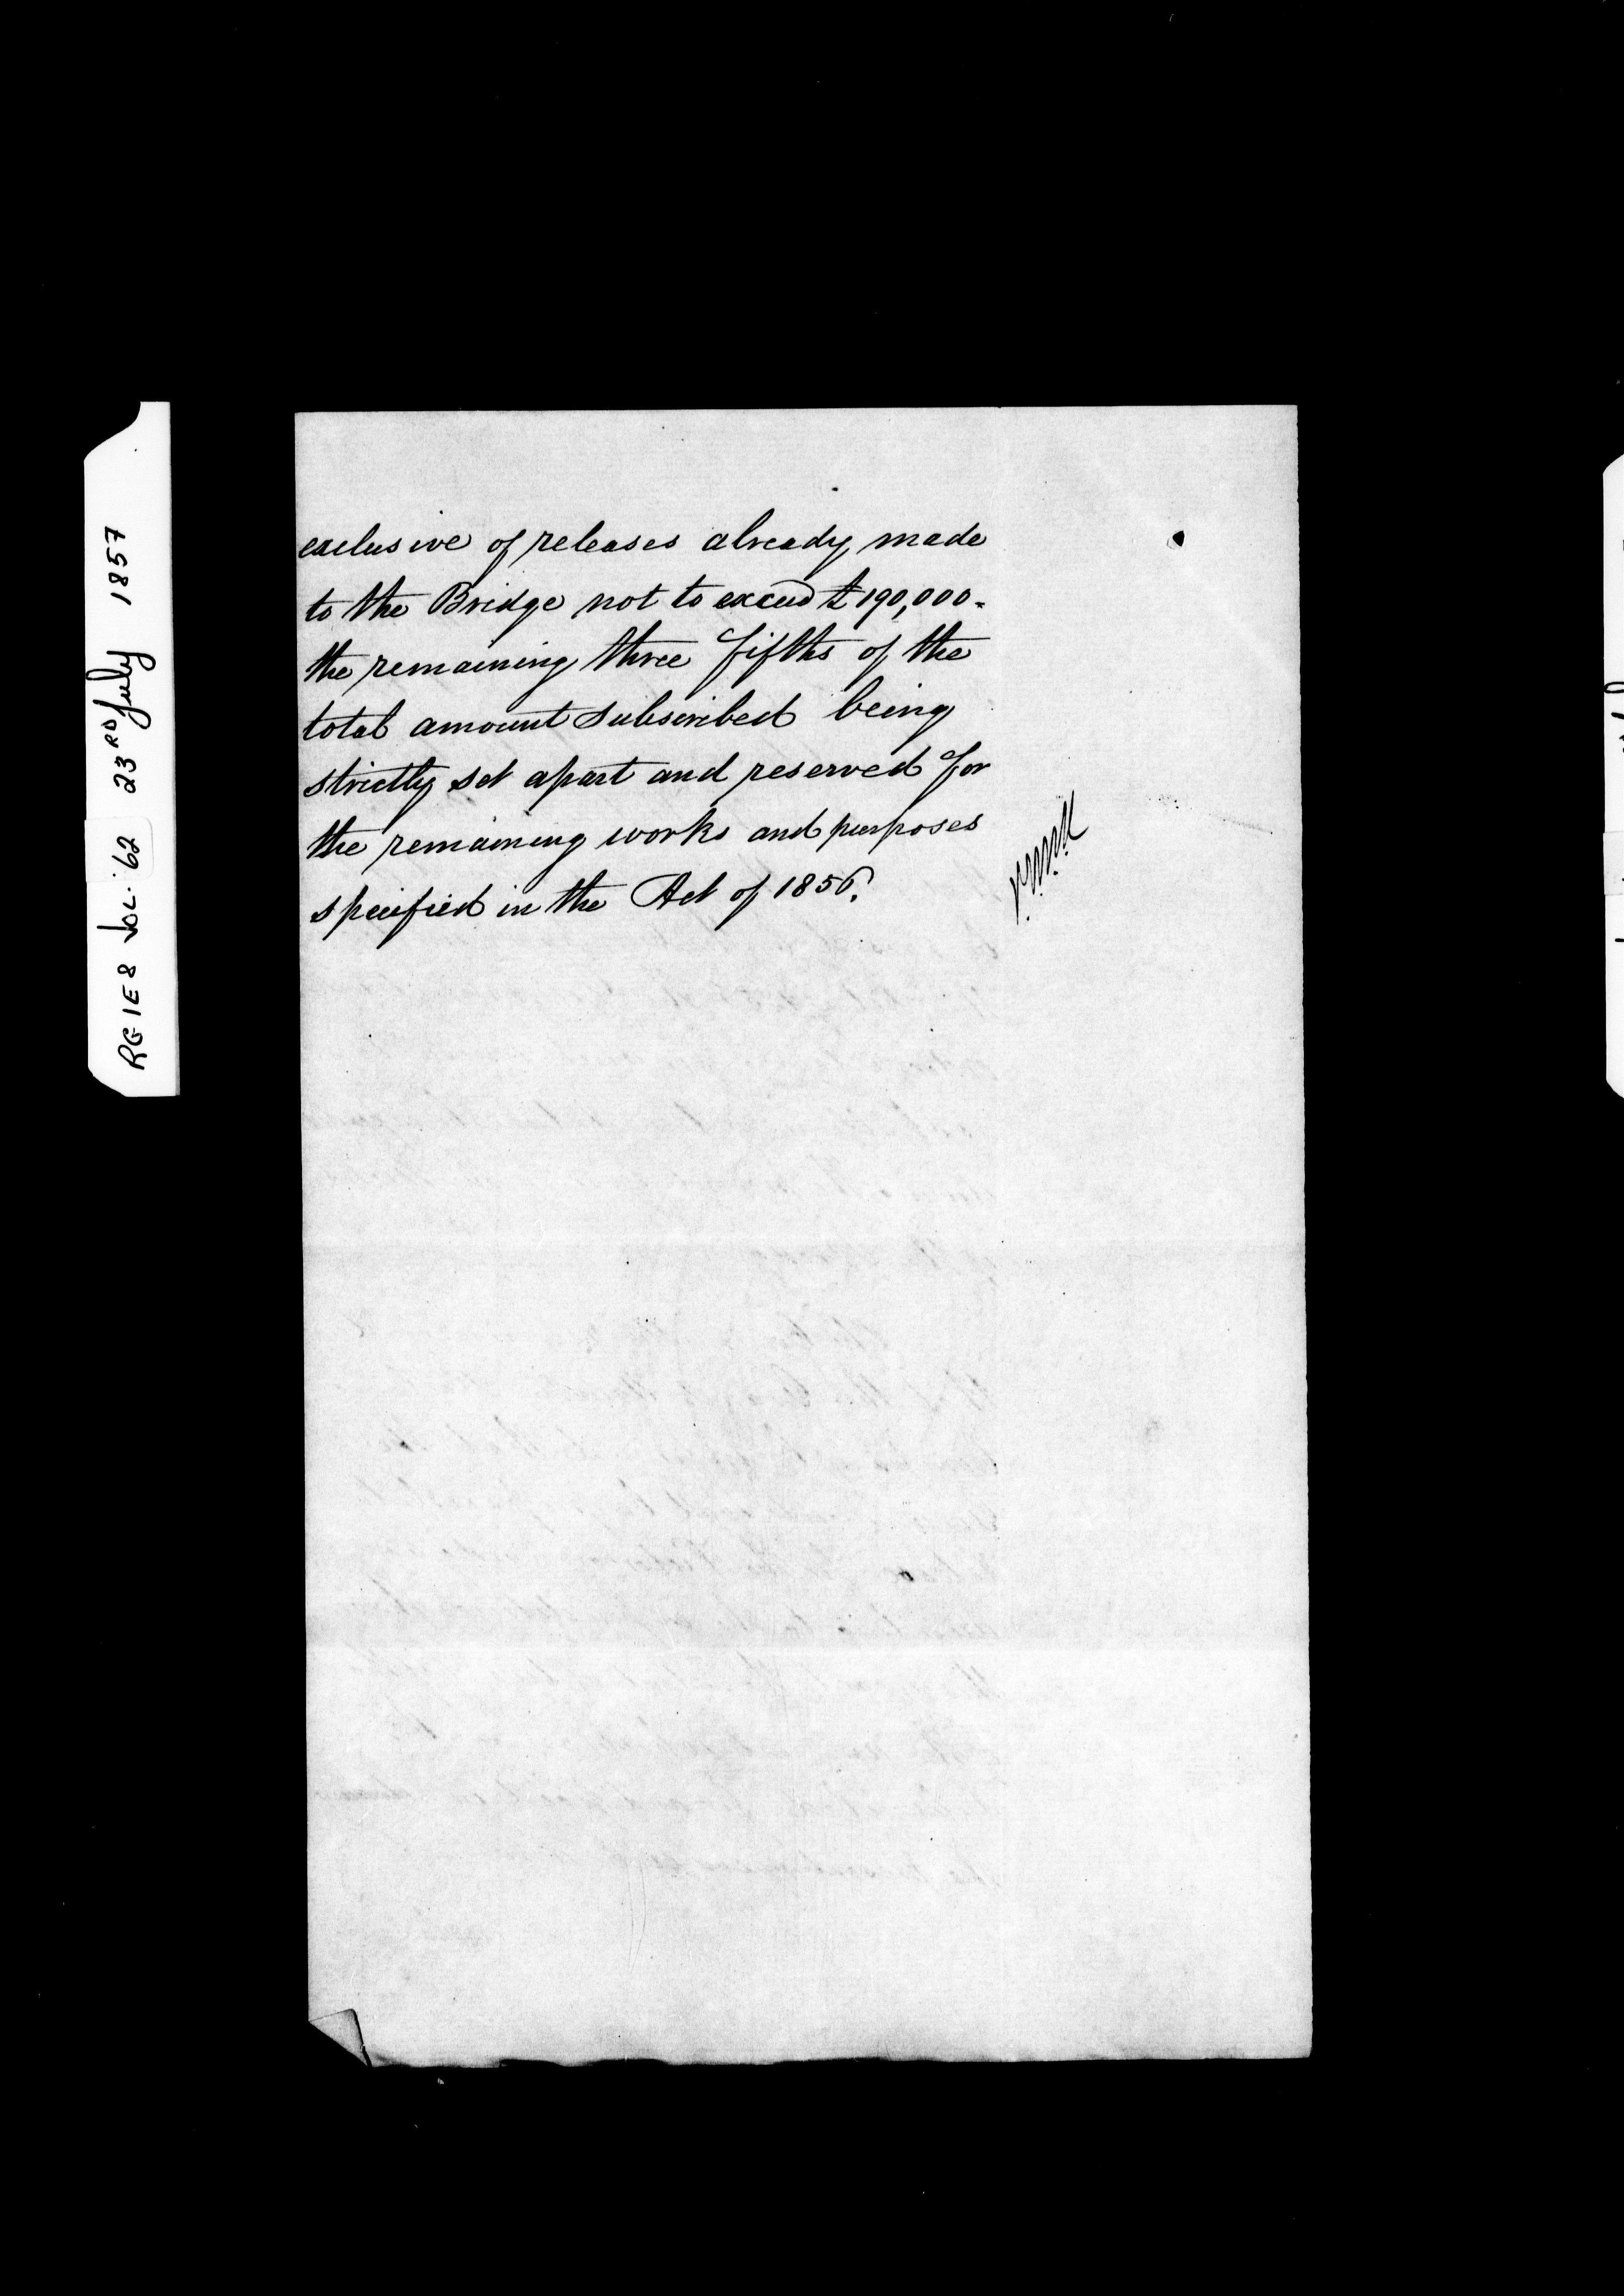 exclusive of releases already made
to the Bridge not to exceed £190,000.
the remaining three fifths of the
total amount subscribed being
strictly set apart and reserved for
the remaining works and purposes
specified in the Act of 1856.
RG1E8 VOL. 62 23RD July 1857